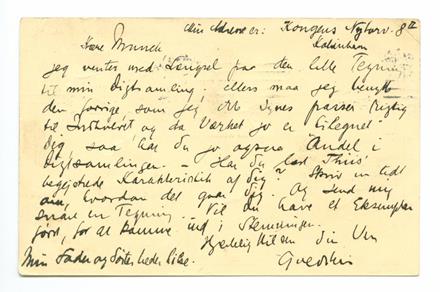 Min Adresse er: Kongens Nytorv 8
København
Kære Munch
jeg venter med Længsel paa den lille Tegning
til min Digtsamling. ellers maa jeg benytte
den forrige som jeg ikke synes passer rigtig
til Indholdet og da Værket jo er tilegnet
Dig, saa har du jo ogsaa Andel i
Digtsamlingen. – Har du læst Thiis'
begejstrede Karakteristik af Dig? Skriv en Gang
om, hvordan det gaar Dig. Og send mig
snart en Tegning. Vil du have et Eksemplar
først, for at komme ind i Stemningen.
Hjertelig Hilsen Din Ven
Min Fader og Søster beder hilse.